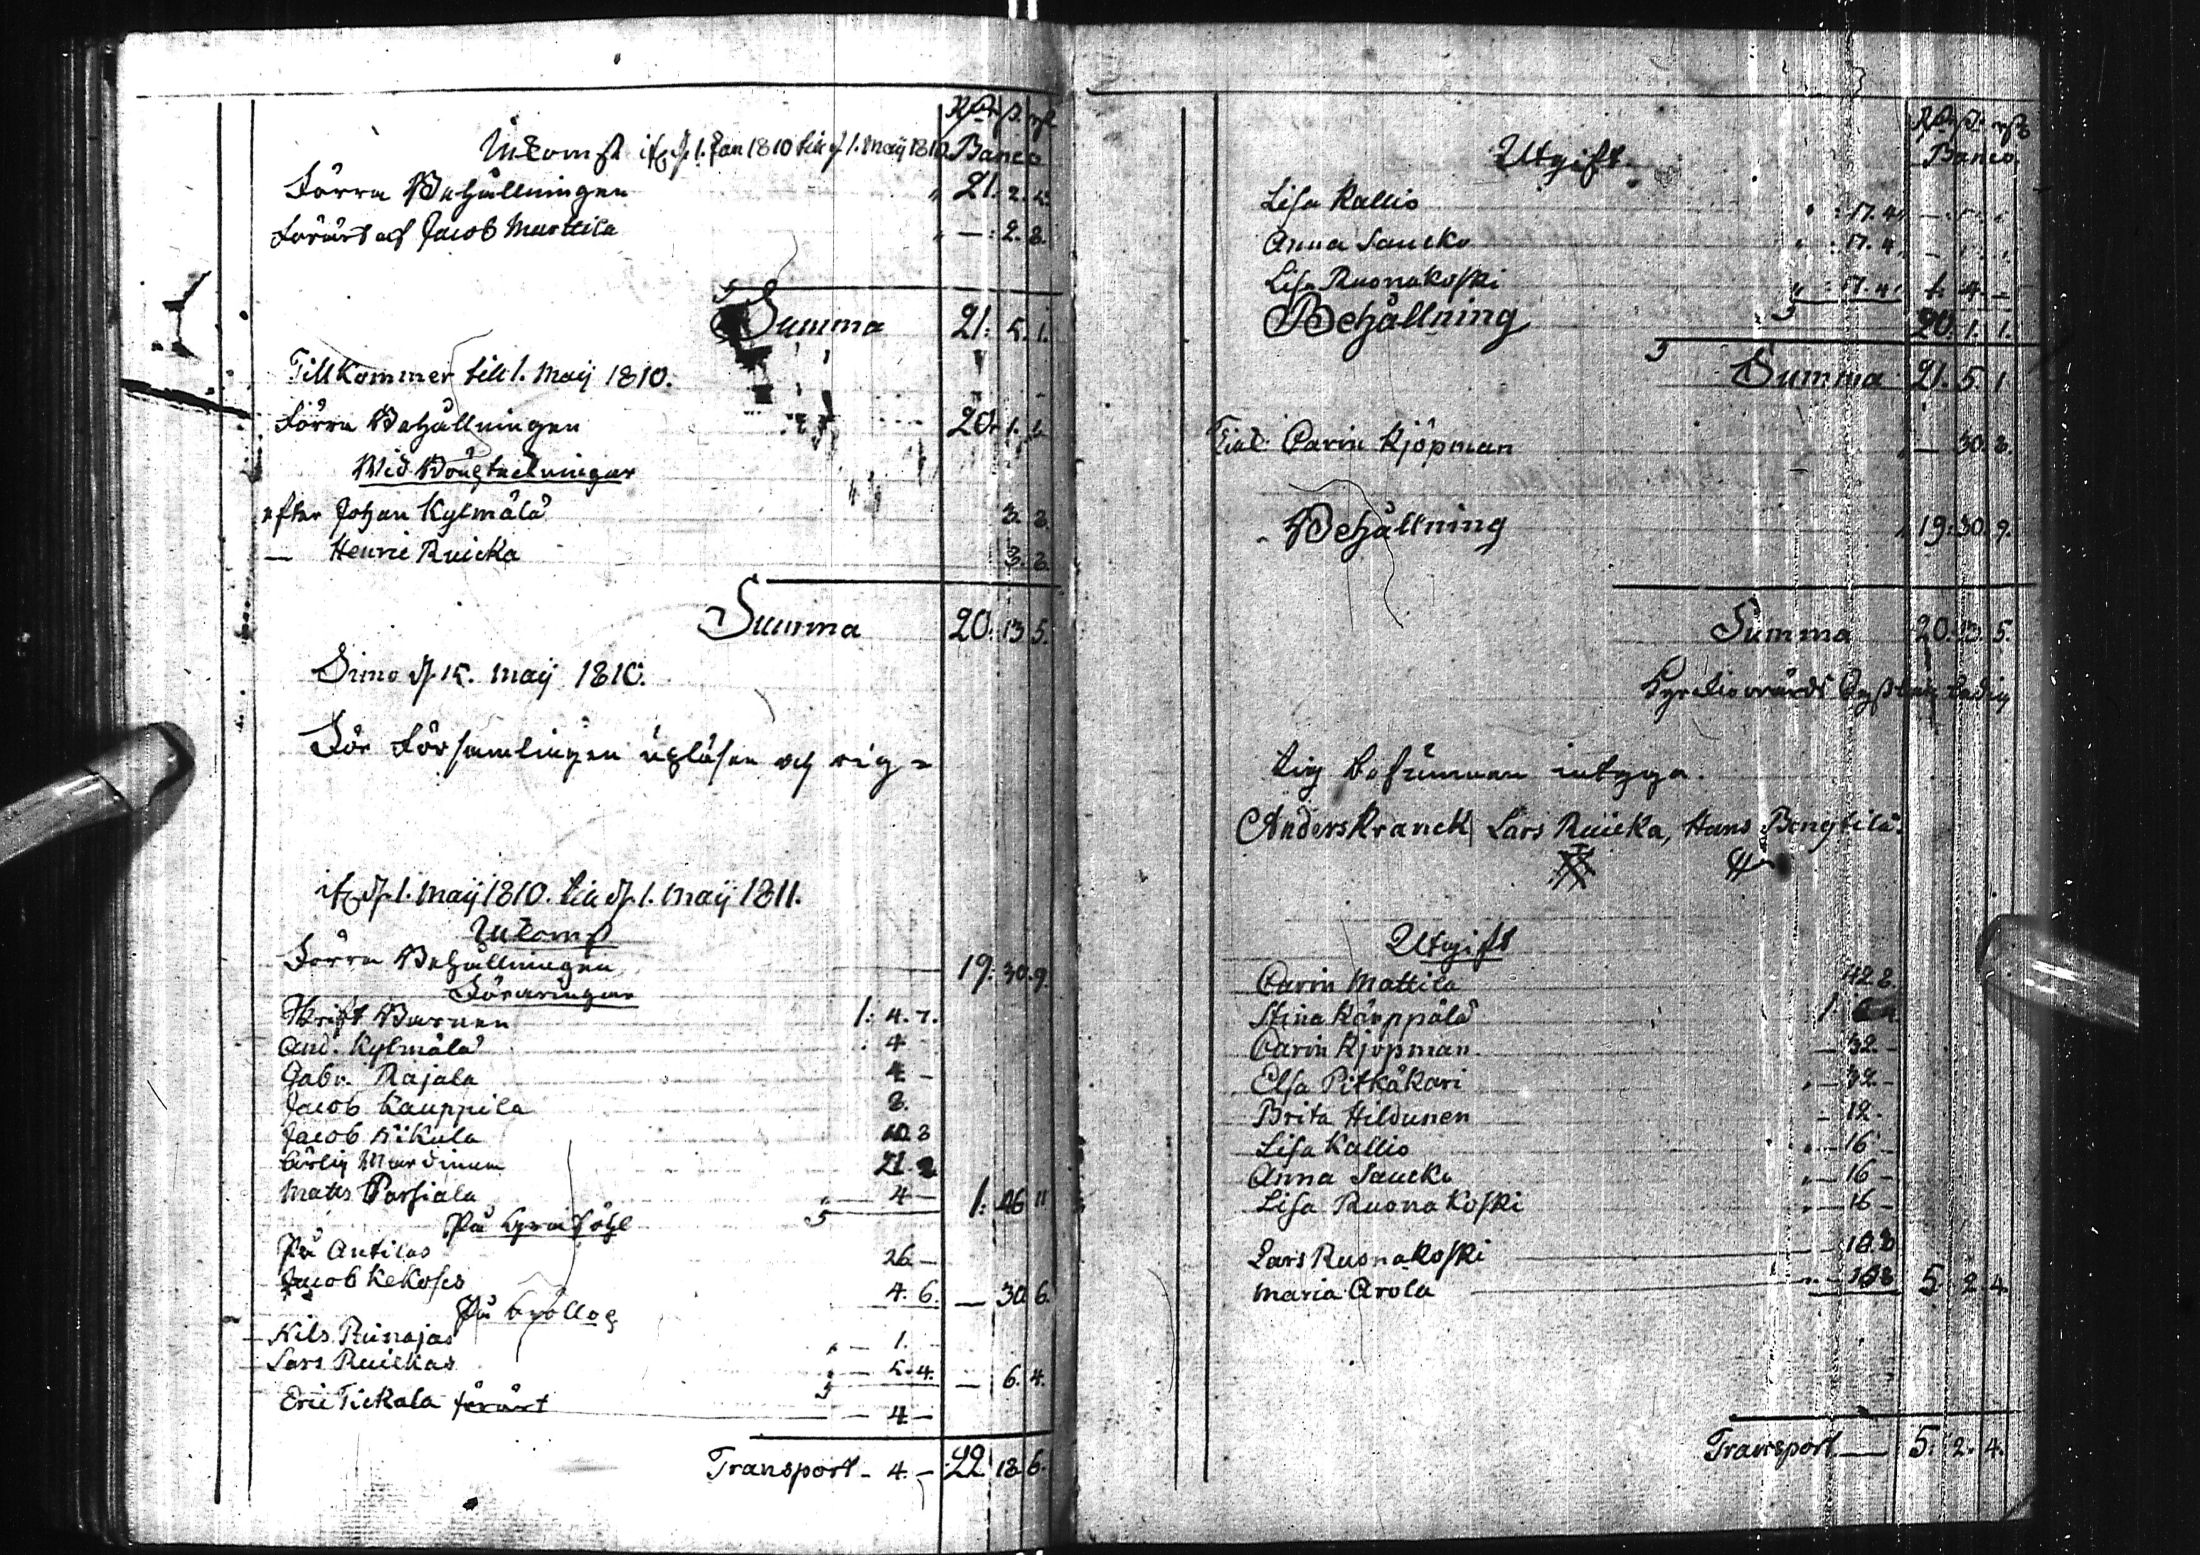 Rdr ß. rst
Inkomst ifr. d. 1. Jan 1810 till d. 1. Maij 1810 Banco
Förra Behållningen 21. 2. 5.
Förärt af Jacob Marttila — : 2. 8.
Summa 21: 5. 1.
Tillkommer till 1. Maij 1810.
Förra Behållningen 20: 1. 1.
Wid Bouptekningar
efter Johan Kylmälä 3. 8.
— Henric Ruicka 3. 8.
Summa 20: 13. 5.
Simo d. 15. Maij 1810.
För Församlingen upläsen och rig=
ifr. d. 1. Maij 1810. till d. 1. Maij 1811.
Inkomst
Förra Behållningen 19: 30. 9.
Föräringar
Skrift Barnen 1: 4. 7.
And. Kylmälä 4
Gabr. Rajala 4 —
Jacob Kauppila 8.
Jacob Kikula 10. 8
21.
Matts Parsiala 4 — 1: 26 11
På Graföhl
På Antilas 26 —
Jacob Kekoses 4. 6. — 30. 6.
På Bröllop
Nils Rinajas — 1.
Lars Ruickas — 5. 4. — 6. 4.
Eric Tickala förärt — 4 —
Transport — 4. — 22 18 6.
Rdr ß. rst
Utgift Banco
Lisa Kallio : 17. 4.
Anna Saucko : 17. 4.
Lisa Ruonakoski : 17. 4. 1. 4. —
Behållning 20. 1. 1.
Summa 21. 5. 1.
Carin Kjöpman — 30. 8.
Behållning 19: 30. 9.
Summa 20. 13. 5.
tig befunnen intyga.
Anders Kranck Lars Ruicka, Hans Bengtila.
Utgift
Carin Mattila 42 8.
Stina Kauppala 1:
Carin Kjöpman — 32 —
Elsa Pitkäkari — 32 —
Brita Hildunen — 12 —
Lisa Kallio — 16 —
Anna Saucko — 16 —
Lisa Ruonakoski — 16 —
Lars Ruonakoski — 10. 8
Maria Arola — 10 8 5. 2. 4
Transport — 5: 2. 4.